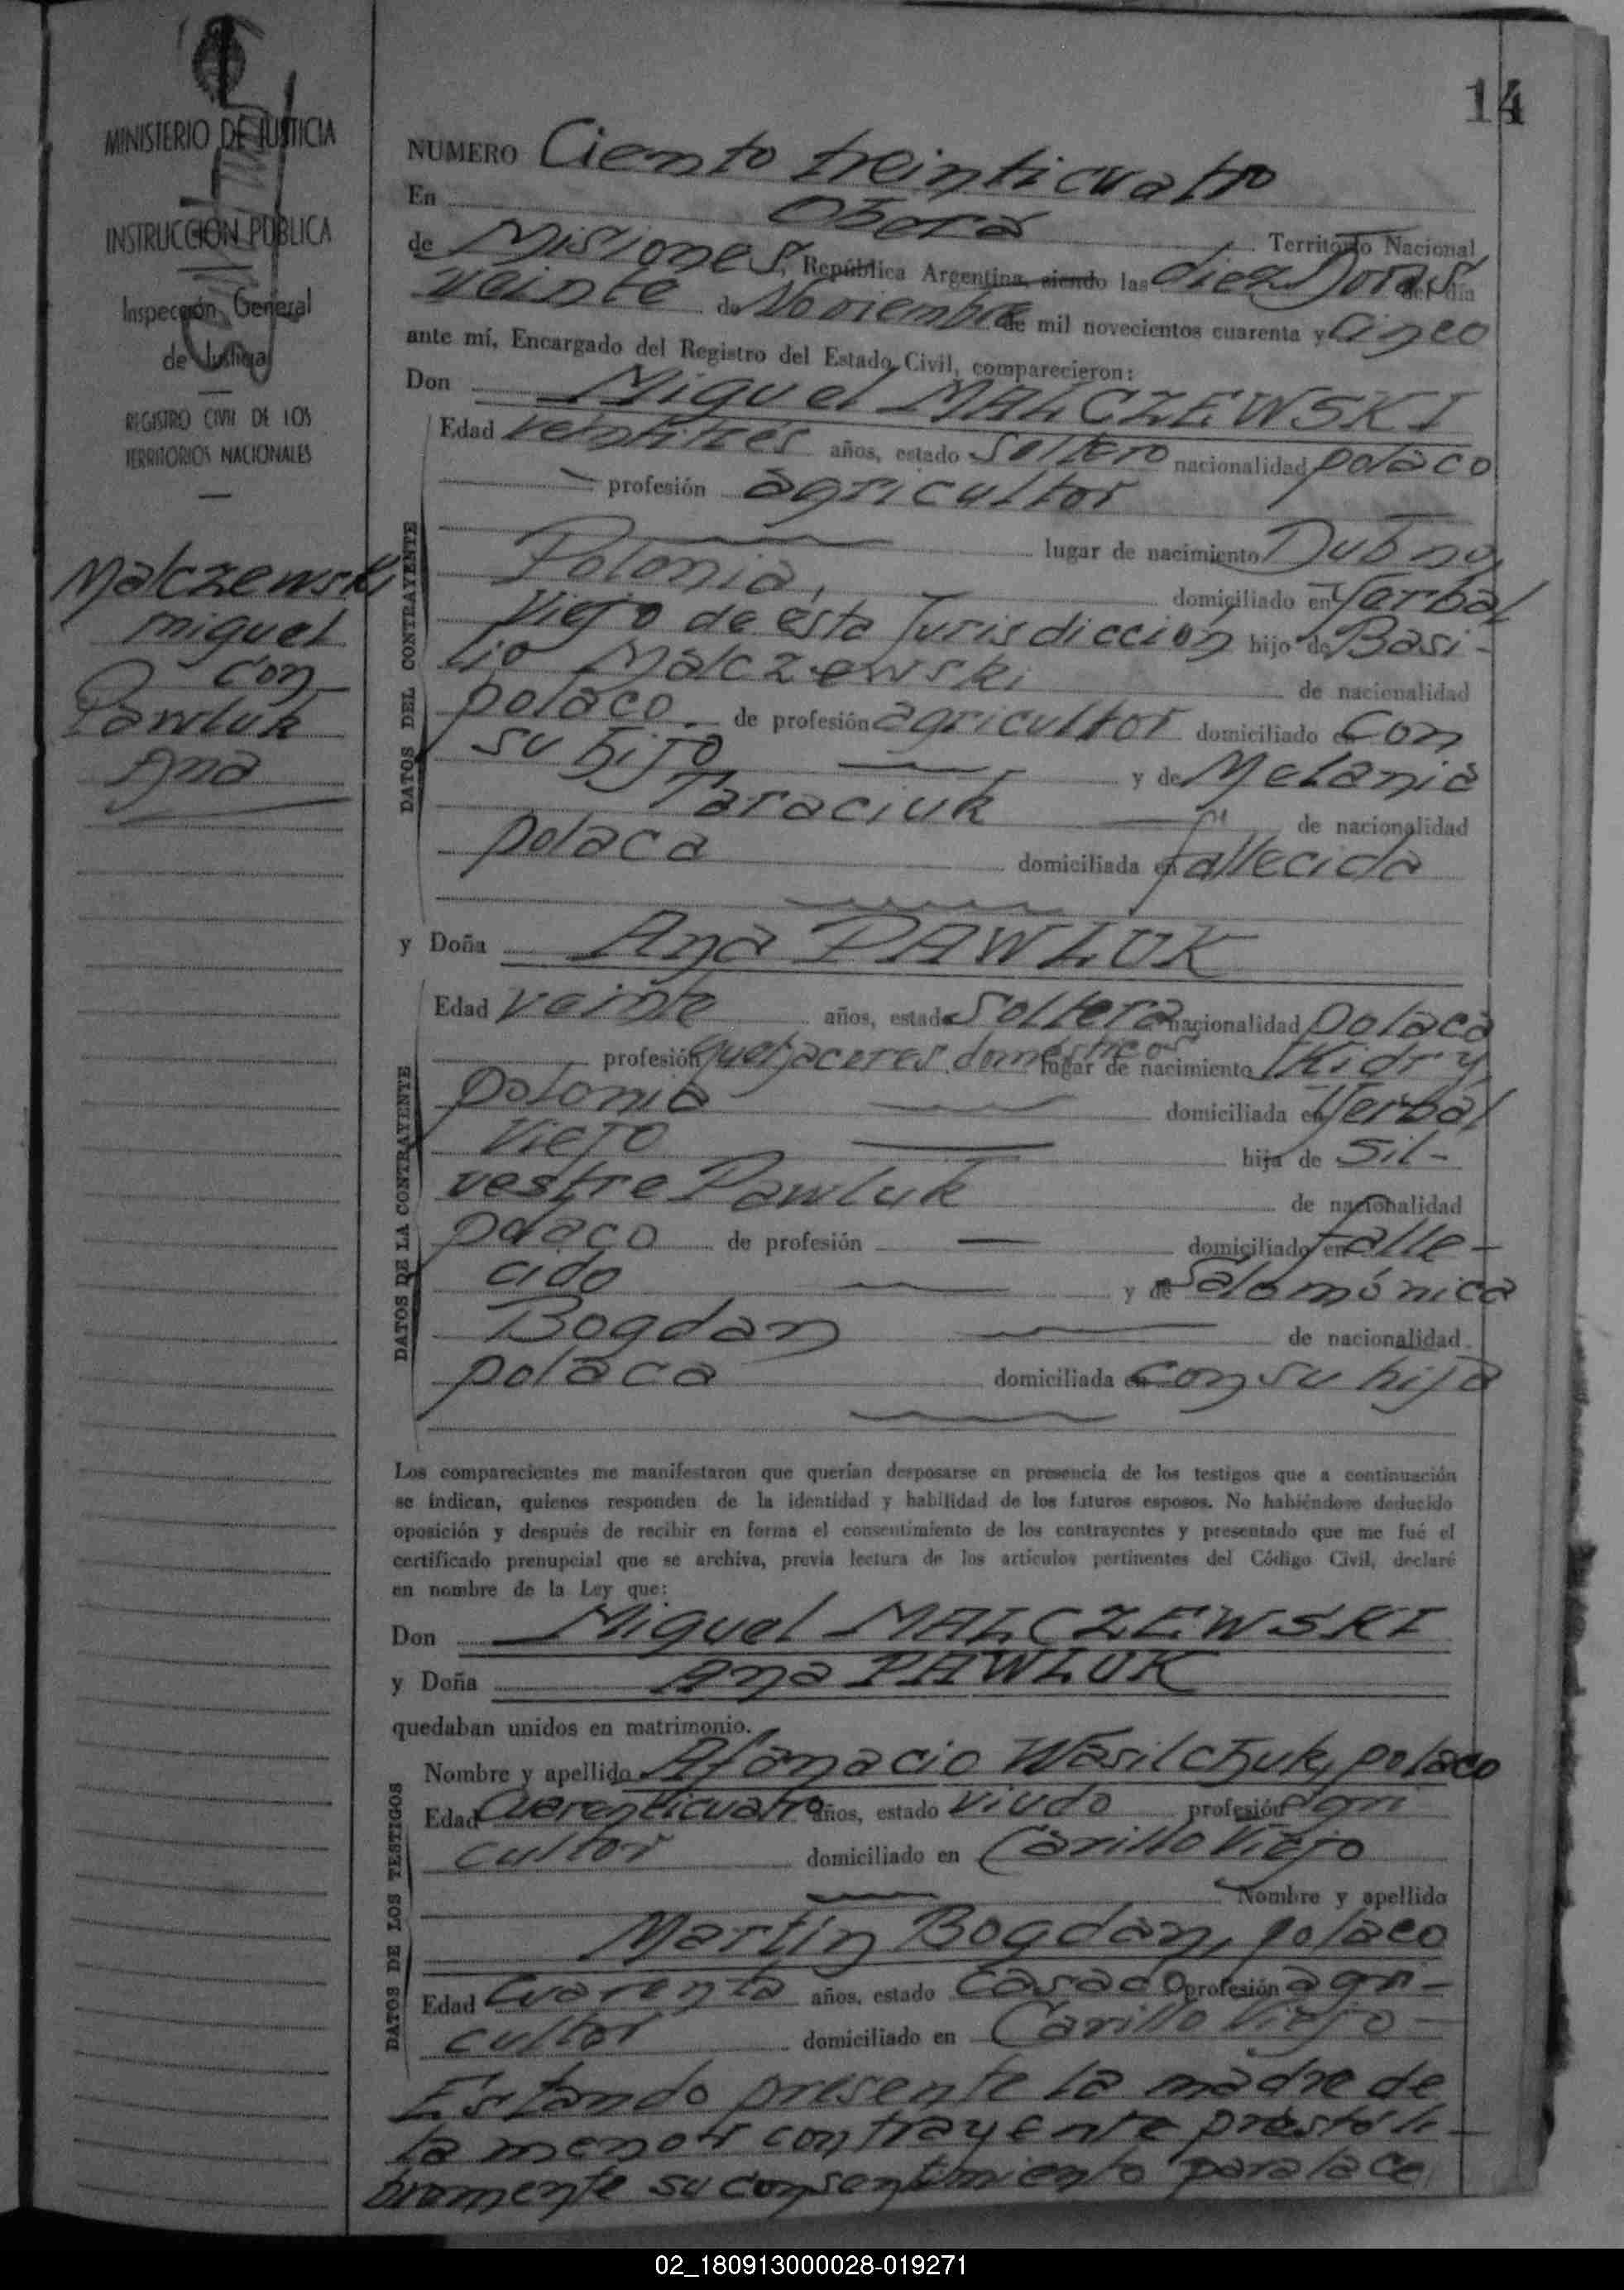 14
MINISTERIO DE JUSTICIA
INSTRUCCION PUBLICA
Inspección General
de Justicia
REGISTRO CIVIL DE LOS
TERRITORIOS NACIONALES
Malczewski
Miguel
Con
Pawluk
Ana
NUMERO Ciento treinticuatro
En Oberá Territorio Nacional
de Misiones, República Argentina, siendo las diez horas del día
veinte de Noviembre de mil novecientos cuarenta y Cinco
ante mí, Encargado del Registro del Estado Civil, comparecieron:
Don Miguel MALCZEWSKI
DATOS DEL CONTRAYENTE
Edad veintitrés años, estado Soltero nacionalidad polaco
profesión agricultor
lugar de nacimiento Dubno,
Polonia, domiciliado en Yerbal
Viejo de ésta Jurisdicción hijo de Basi-
lio Malczewski de nacionalidad
polaco. de profesión agricultor domiciliado en Con
su hijo y de Melania
Taraciuk de nacionalidad
polaca domiciliada en fallecida
y Doña Ana PAWLUK
DATOS DE LA CONTRAYENTE
Edad veinte años, estado Soltera nacionalidad polaca
profesión quehaceres domésticos lugar de nacimiento Kidry
Polonia domiciliada en Yerbal
Viejo hija de Sil-
vestre Pawluk de nacionalidad
polaco de profesión — domiciliado en falle-
cido y de Salomónica
Bogdan de nacionalidad
polaca domiciliada en con su hija
Los comparecientes me manifestaron que querían desposarse en presencia de los testigos que a continuación
se indican, quienes responden de la identidad y habilidad de los futuros esposos. No habiéndose deducido
oposición y después de recibir en forma el consentimiento de los contrayentes y presentado que me fué el
certificado prenupcial que se archiva, previa lectura de los artículos pertinentes del Código Civil, declaré
en nombre de la Ley que:
Don Miguel MALCZEWSKI
y Doña Ana PAWLUK
quedaban unidos en matrimonio.
DATOS DE LOS TESTIGOS
Nombre y apellido Afanacio Wasilchuk, polaco
Edad Cuarenticuatro años, estado viudo profesión agri
cultor domiciliado en Carillo Viejo
Nombre y apellido
Martín Bogdan, polaco
Edad Cuarenta años, estado Casado profesión agri-
cultor domiciliado en Carillo Viejo
Estando presente la madre de
la menor contrayente prestó li-
bremente su consentimiento para la ce
02_180913000028-019271